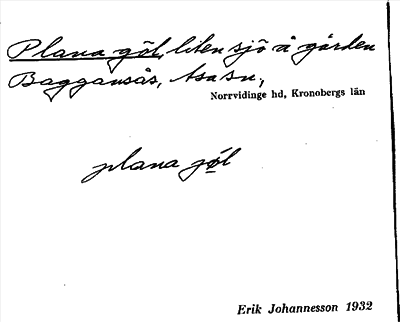 Plana göl, liten sjö å gården
Baggansås, Asa sn,
Norrvidinge hd, Kronobergs län
plana göl
Erik Johannesson 1932